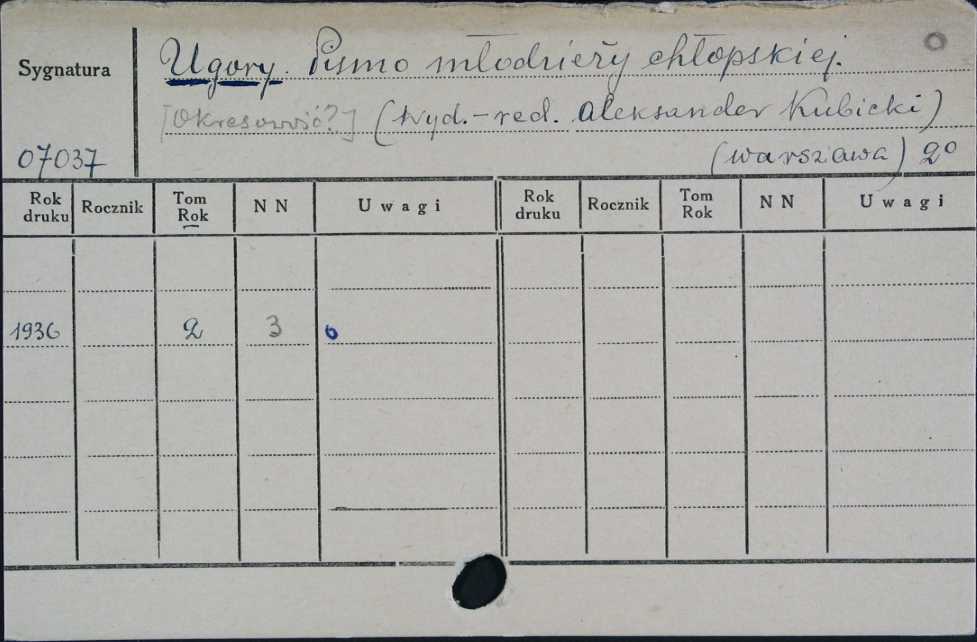 Sygnatura
Ugory. Pismo młodzieży chłopskiej.
[Okresowość?] (Wyd.-red. Aleksander Kubicki)
07037
(Warszawa) 2°
Rok druku Rocznik Tom Rok N N Uwagi Rok druku Rocznik Tom Rok N N Uwagi
1936 2 3 o